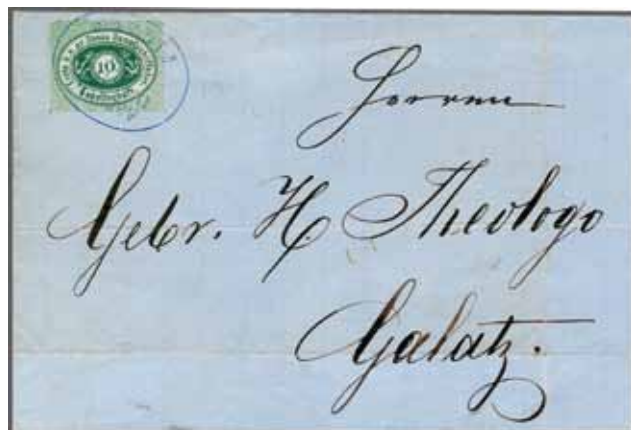 10
Herren
Gebr. H. Theologo
Galatz.